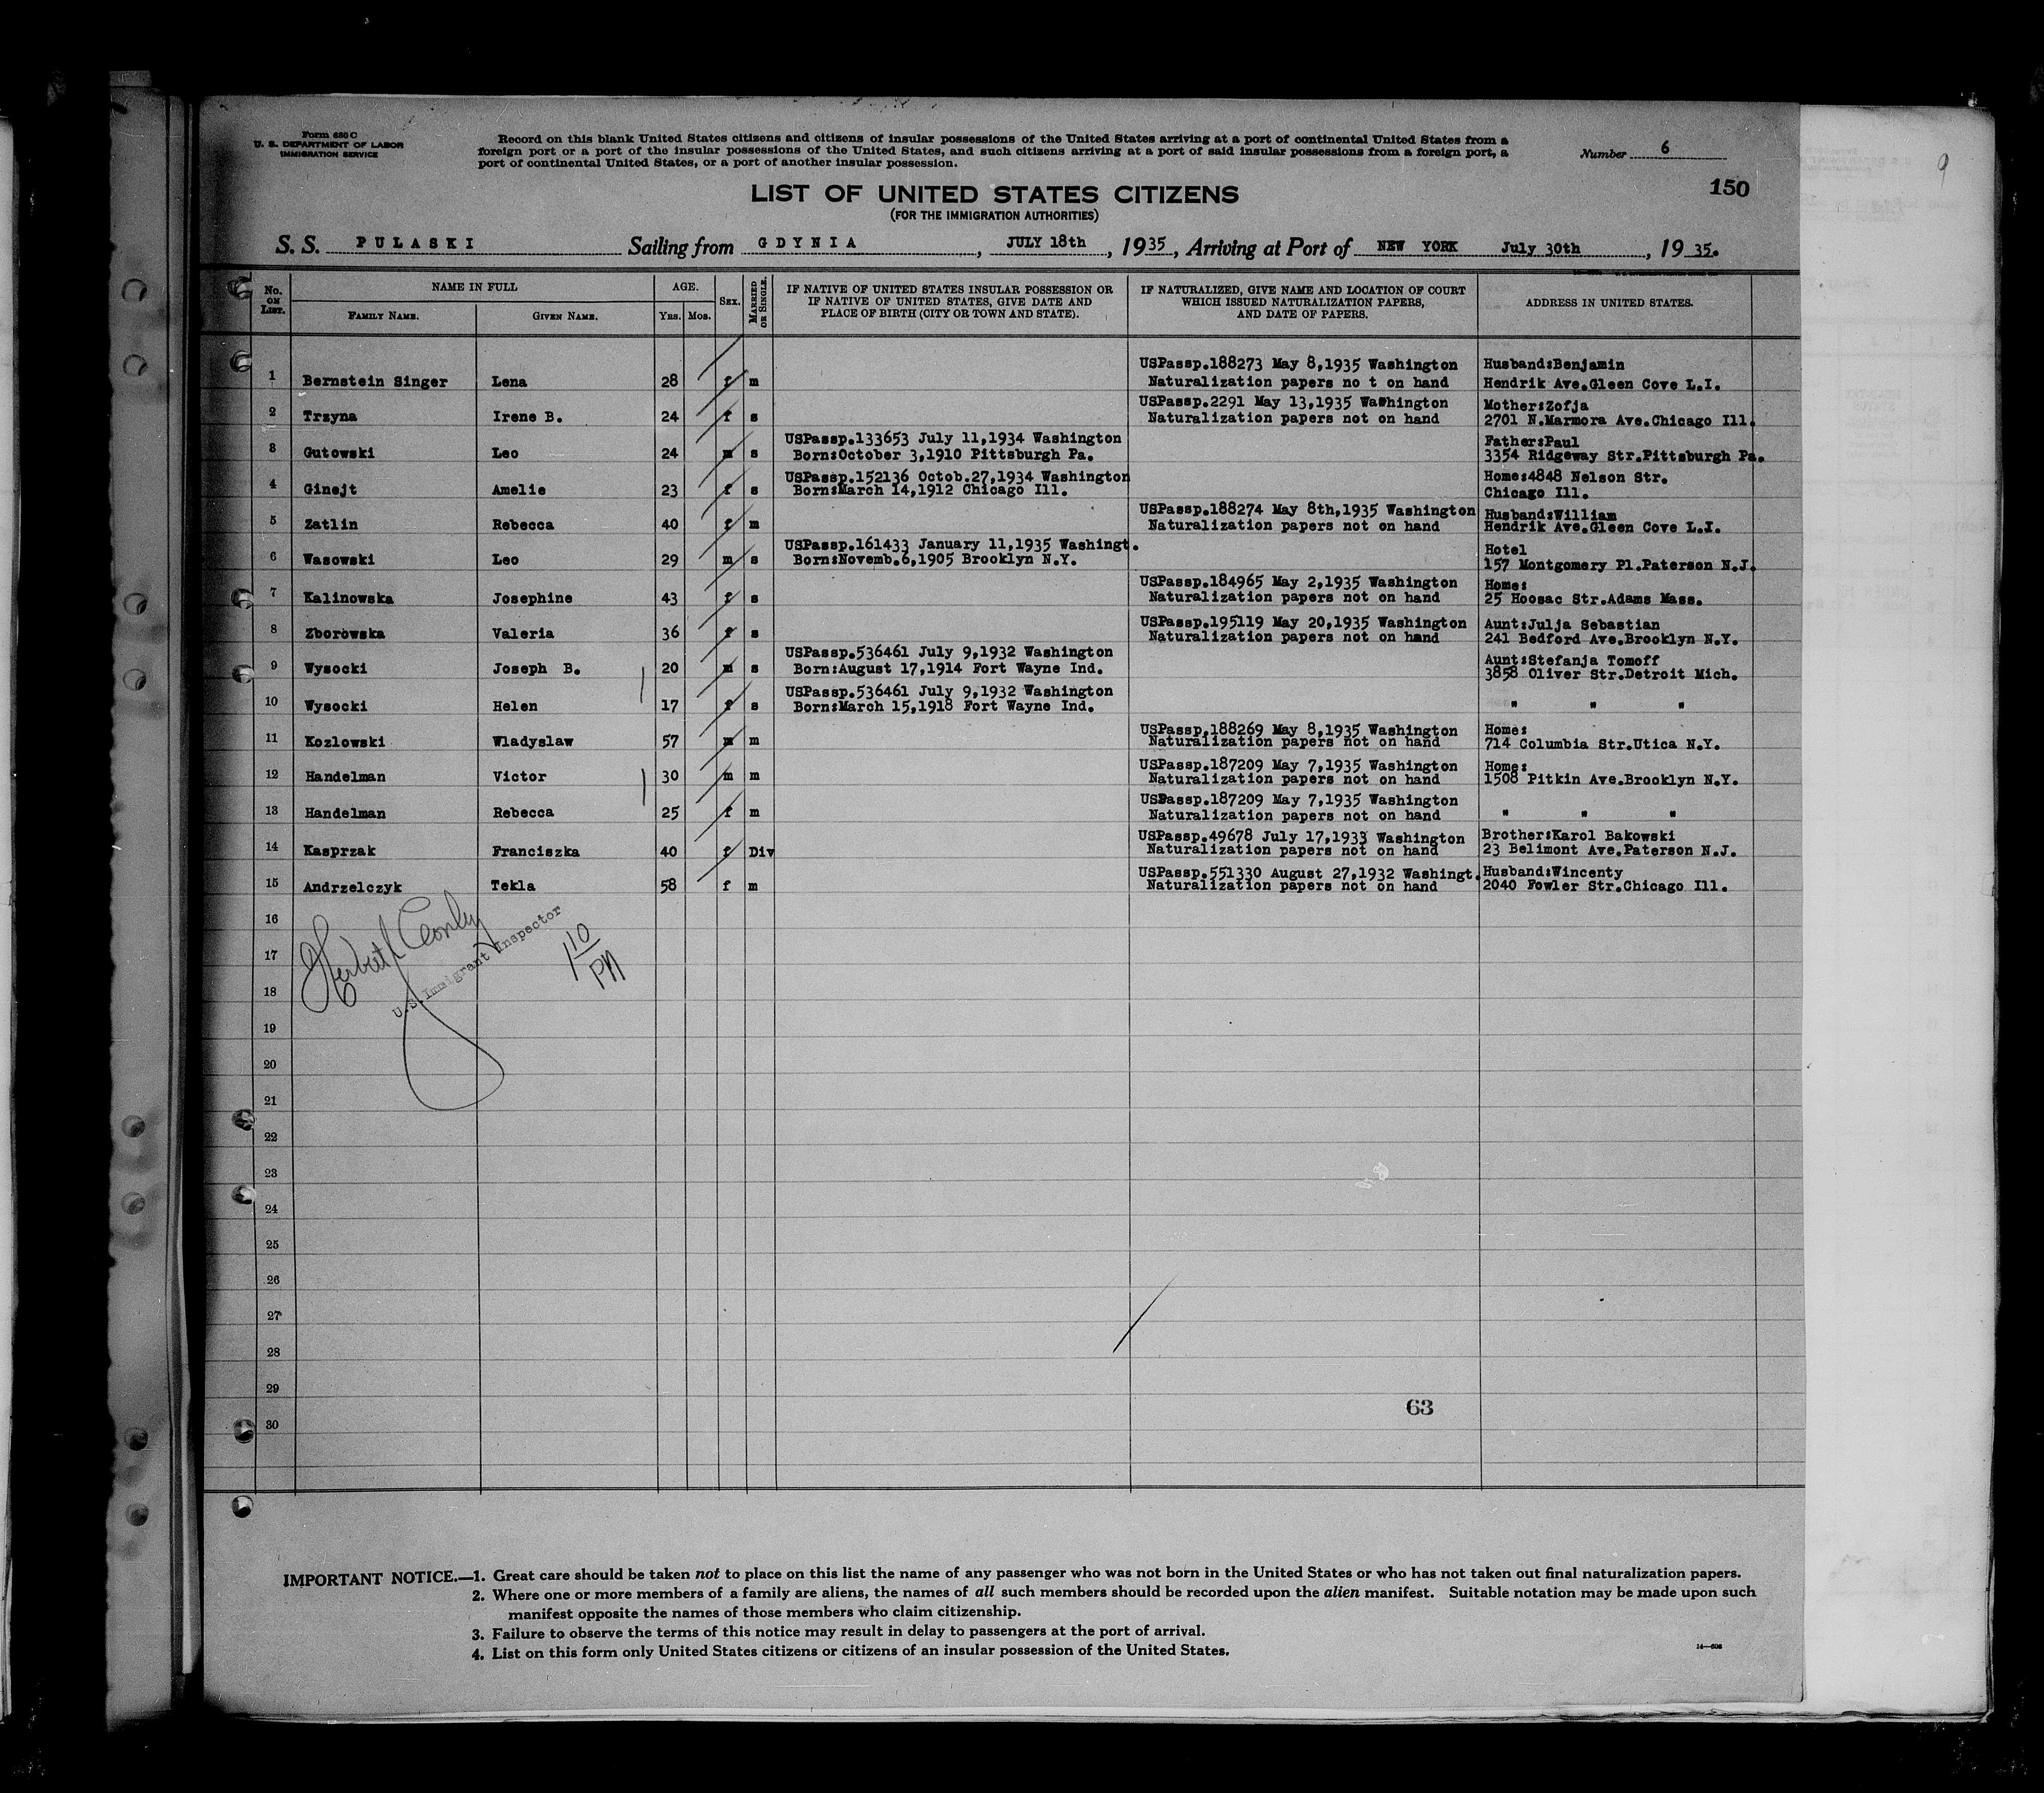 Form 630 C
U. S. DEPARTMENT OF LABOR
IMMIGRATION SERVICE
Record on this blank United States citizens and citizens of insular possessions of the United States arriving at a port of continental United States from a
foreign port or a port of the insular possessions of the United States, and such citizens arriving at a port of said insular possessions from a foreign port, a
port of continental United States, or a port of another insular possession.
Number 6
150
LIST OF UNITED STATES CITIZENS
(FOR THE IMMIGRATION AUTHORITIES)
S. S. PULASKI Sailing from GDYNIA, JULY 18th, 1935, Arriving at Port of NEW YORK July 30th, 1935.
No. ON LIST. NAME IN FULL FAMILY NAME. GIVEN NAME. AGE. YRS. MOS. SEX. MARRIED OR SINGLE. IF NATIVE OF UNITED STATES INSULAR POSSESSION OR IF NATIVE OF UNITED STATES, GIVE DATE AND PLACE OF BIRTH (CITY OR TOWN AND STATE). IF NATURALIZED, GIVE NAME AND LOCATION OF COURT WHICH ISSUED NATURALIZATION PAPERS, AND DATE OF PAPERS. ADDRESS IN UNITED STATES.
USPassp.188273 May 8,1935 Washington Husband:Benjamin
1 Bernstein Singer Lena 28 f m Naturalization papers no t on hand Hendrik Ave.Gleen Cove L.I.
USPassp.2291 May 13,1935 Washington Mother:Zofja
2 Trzyna Irene B. 24 f s Naturalization papers not on hand 2701 N.Marmora Ave.Chicago Ill.
USPassp.133653 July 11,1934 Washington Father:Paul
3 Gutowski Leo 24 m s Born:October 3,1910 Pittsburgh Pa. 3354 Ridgeway Str.Pittsburgh Pa.
USPassp.152136 Octob.27,1934 Washington Home:4848 Nelson Str.
4 Ginejt Amelie 23 f s Born:March 14,1912 Chicago Ill. Chicago Ill.
USPassp.188274 May 8th,1935 Washington Husband:William
5 Zatlin Rebecca 40 f m Naturalization papers not on hand Hendrik Ave.Gleen Cove L.I.
USPassp.161433 January 11,1935 Washingt. Hotel
6 Wasowski Leo 29 m s Born:Novemb.6,1905 Brooklyn N.Y. 157 Montgomery Pl.Paterson N.J.
USPassp.184965 May 2,1935 Washington Home:
7 Kalinowska Josephine 43 f s Naturalization papers not on hand 25 Hoosac Str.Adams Mass.
USPassp.195119 May 20,1935 Washington Aunt:Julja Sebastian
8 Zborowska Valeria 36 f s Naturalization papers not on hand 241 Bedford Ave.Brooklyn N.Y.
USPassp.536461 July 9,1932 Washington Aunt:Stefanja Tomoff
9 Wysocki Joseph B. 20 m s Born:August 17,1914 Fort Wayne Ind. 3858 Oliver Str.Detroit Mich.
USPassp.536461 July 9,1932 Washington
10 Wysocki Helen 17 f s Born:March 15,1918 Fort Wayne Ind. " " "
USPassp.188269 May 8,1935 Washington Home:
11 Kozlowski Wladyslaw 57 m m Naturalization papers not on hand 714 Columbia Str.Utica N.Y.
USPassp.187209 May 7,1935 Washington Home:
12 Handelman Victor 30 m m Naturalization papers not on hand 1508 Pitkin Ave.Brooklyn N.Y.
USPassp.187209 May 7,1935 Washington
13 Handelman Rebecca 25 f m Naturalization papers not on hand " " "
USPassp.49678 July 17,1933 Washington Brother:Karol Bakowski
14 Kasprzak Franciszka 40 f Div Naturalization papers not on hand 23 Belimont Ave.Paterson N.J.
USPassp.551330 August 27,1932 Washingt. Husband:Wincenty
15 Andrzelczyk Tekla 58 f m Naturalization papers not on hand 2040 Fowler Str.Chicago Ill.
16
17
18
U.S. Immigrant Inspector
1 10 PM
19
20
21
22
23
24
25
26
27
28
29
63
30
IMPORTANT NOTICE.—1. Great care should be taken not to place on this list the name of any passenger who was not born in the United States or who has not taken out final naturalization papers.
2. Where one or more members of a family are aliens, the names of all such members should be recorded upon the alien manifest. Suitable notation may be made upon such
manifest opposite the names of those members who claim citizenship.
3. Failure to observe the terms of this notice may result in delay to passengers at the port of arrival.
4. List on this form only United States citizens or citizens of an insular possession of the United States.
14—608